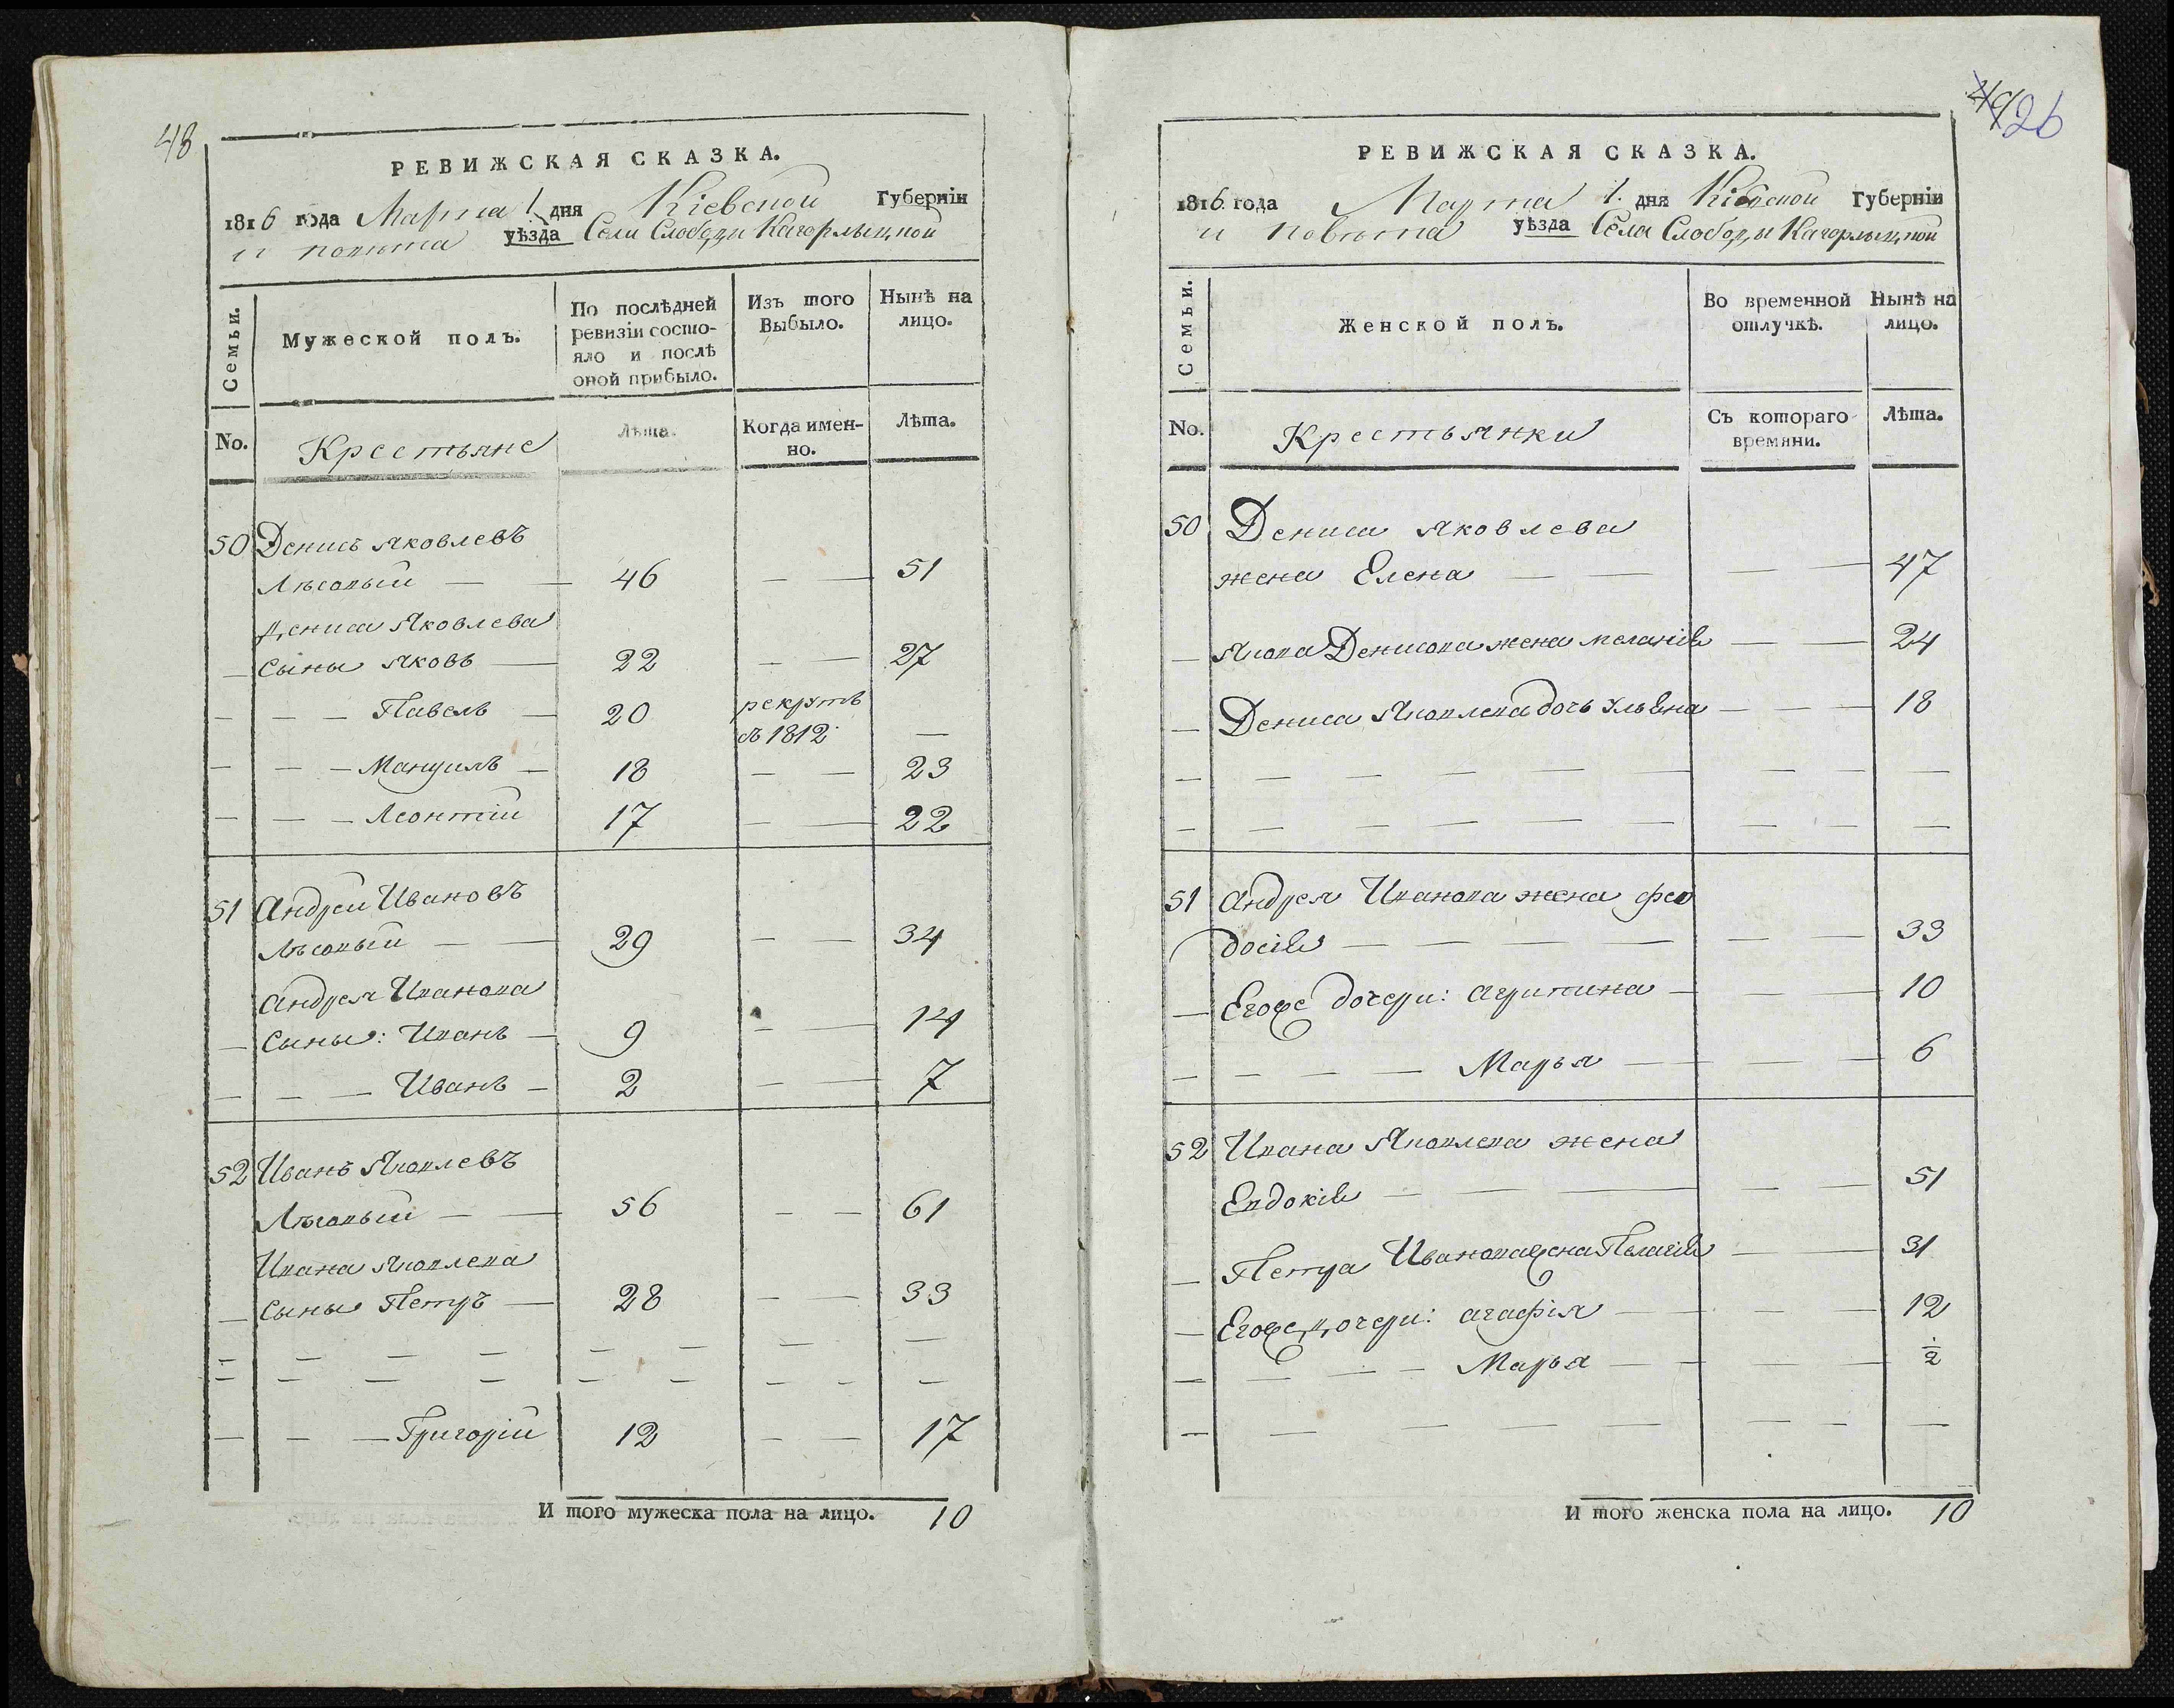 48
РЕВИЖСКАЯ СКАЗКА.
1816 года Марта 1 дня Кіевской Губерніи
и повѣта уѣзда Села Слободы Кагорлыцкой
Семьи.
Мужеской полъ.
По послѣдней
ревизіи состо-
яло и послѣ
оной прибыло.
Изъ того
Выбыло.
Нынѣ на
лицо.
No.
Крестьяне
Лѣта.
Когда имен-
но.
Лѣта.
50 Денисъ Яковлевъ
Лѣсовый — — 46 — — 51
Дениса Яковлева
— Сыны Яковъ — 22 — — 27
— — — Павелъ — 20 рекрутъ
въ 1812 —
— — — Мануилъ — 18 — — 23
— — — Леонтій 17 — — 22
51 Андрей Ивановъ
Лѣсовый — — 29 — — 34
Андрея Иванова
— Сыны: Иванъ — 9 — — 14
— — — Иванъ — 2 — — 7
52 Иванъ Яковлевъ
Лѣсовый — — 56 — — 61
Ивана Яковлева
— Сыны Петръ — 28 — — 33
— — — — — — — —
— — — — — — — — —
— — — Григорій 12 — — 17
И того мужеска пола на лицо. 10
49 26
РЕВИЖСКАЯ СКАЗКА.
1816 года Марта 1. дня Кіевской Губерніи
и повѣта уѣзда Села Слободы Кагорлыцкой
Семьи.
Женской полъ.
Во временной
отлучкѣ.
Нынѣ на
лицо.
No.
Крестьянки
Съ котораго
времяни.
Лѣта.
50 Дениса Яковлева
жена Елена — — — — 47
— Якова Денисова жена Меланія — — 24
— Дениса Яковлева дочь Ульяна — — — 18
— — — — — — — — — —
— — — — — — — — — —
51 Андрея Иванова жена Фео
досія — — — — — — 33
— Егоже дочери: Агрипина — — — 10
— — — — — Марья — — — 6
52 Ивана Яковлева жена
Евдокія — — — — — 51
— Петра Иванова жена Пелагія — — 31
— Егоже дочери: Агафія — — — 12
— — — — Марья — — — — ½
— — — — — — — —
И того женска пола на лицо. 10